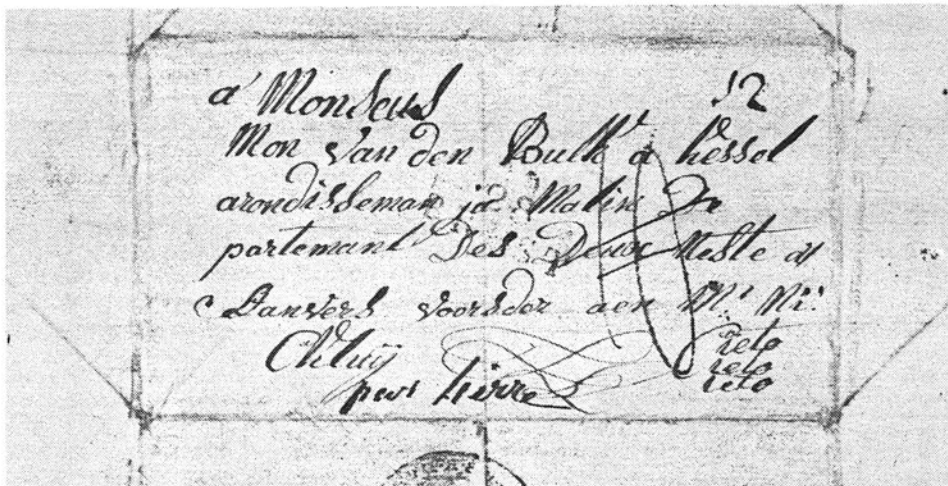 a Monseus 12
Mon Van den Bulk a hessel
arondisseman ja Malin De
partemant Des Deux Neste a
Danvers voorsder aen Mr
cito
cito
cito
par Lierre